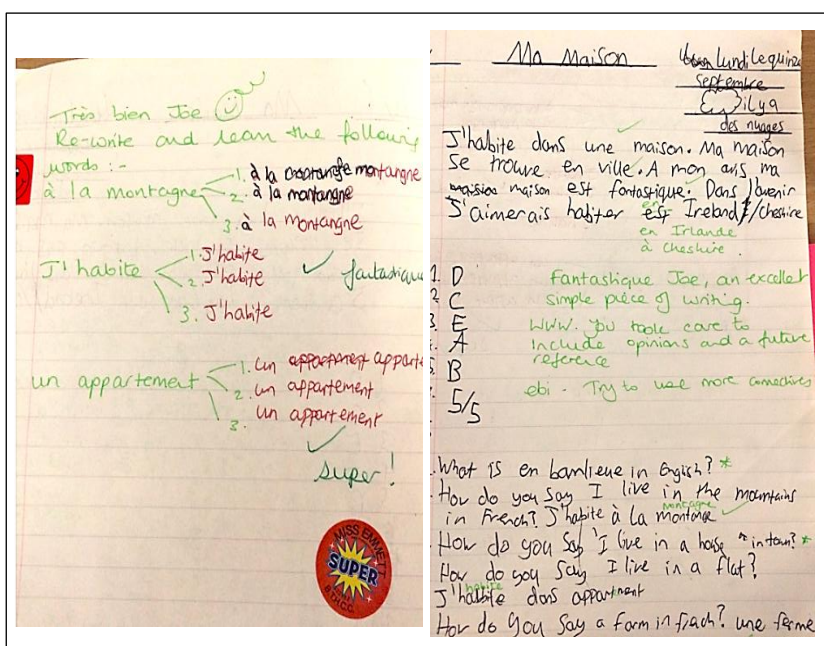 Très bien Joe
Re-write and learn the following
words :-
à la montagne
1. à la montangne
2. à la montangne
3. à la montangne
J'habite
1. J'habite
2. J'habite
3. J'habite
fantastique
un appartement
1. un apparte
2. un appartement
3. un appartement
super!
MISS EMMETT
SUPER
B.T.H.C.C.
Ma Maison
lundi le quinze
Septembre
il y a
des nuages
J'habite dans une maison. Ma maison
se trouve en ville. A mon avis, ma
maison est fantastique. Dans l'avenir
en
J'aimerais habiter est Ireland/chestire
en Irlande
à cheshire
1. D
2. C
3. E
A
B
5/5
Fantastique Joe, an excellet
simple piece of writing.
WWW. You took care to
include opinions and a future
reference
ebi - Try to use more connectives
What is en banlieue in English? *
How do you say I live in the mountains
montagne
in French? J'habite à la montane
How do you say 'I live in a house in town? *
How do you say I live in a flat?
habite
J'habbite dans appartment
How do you say a farm in frach? une ferme